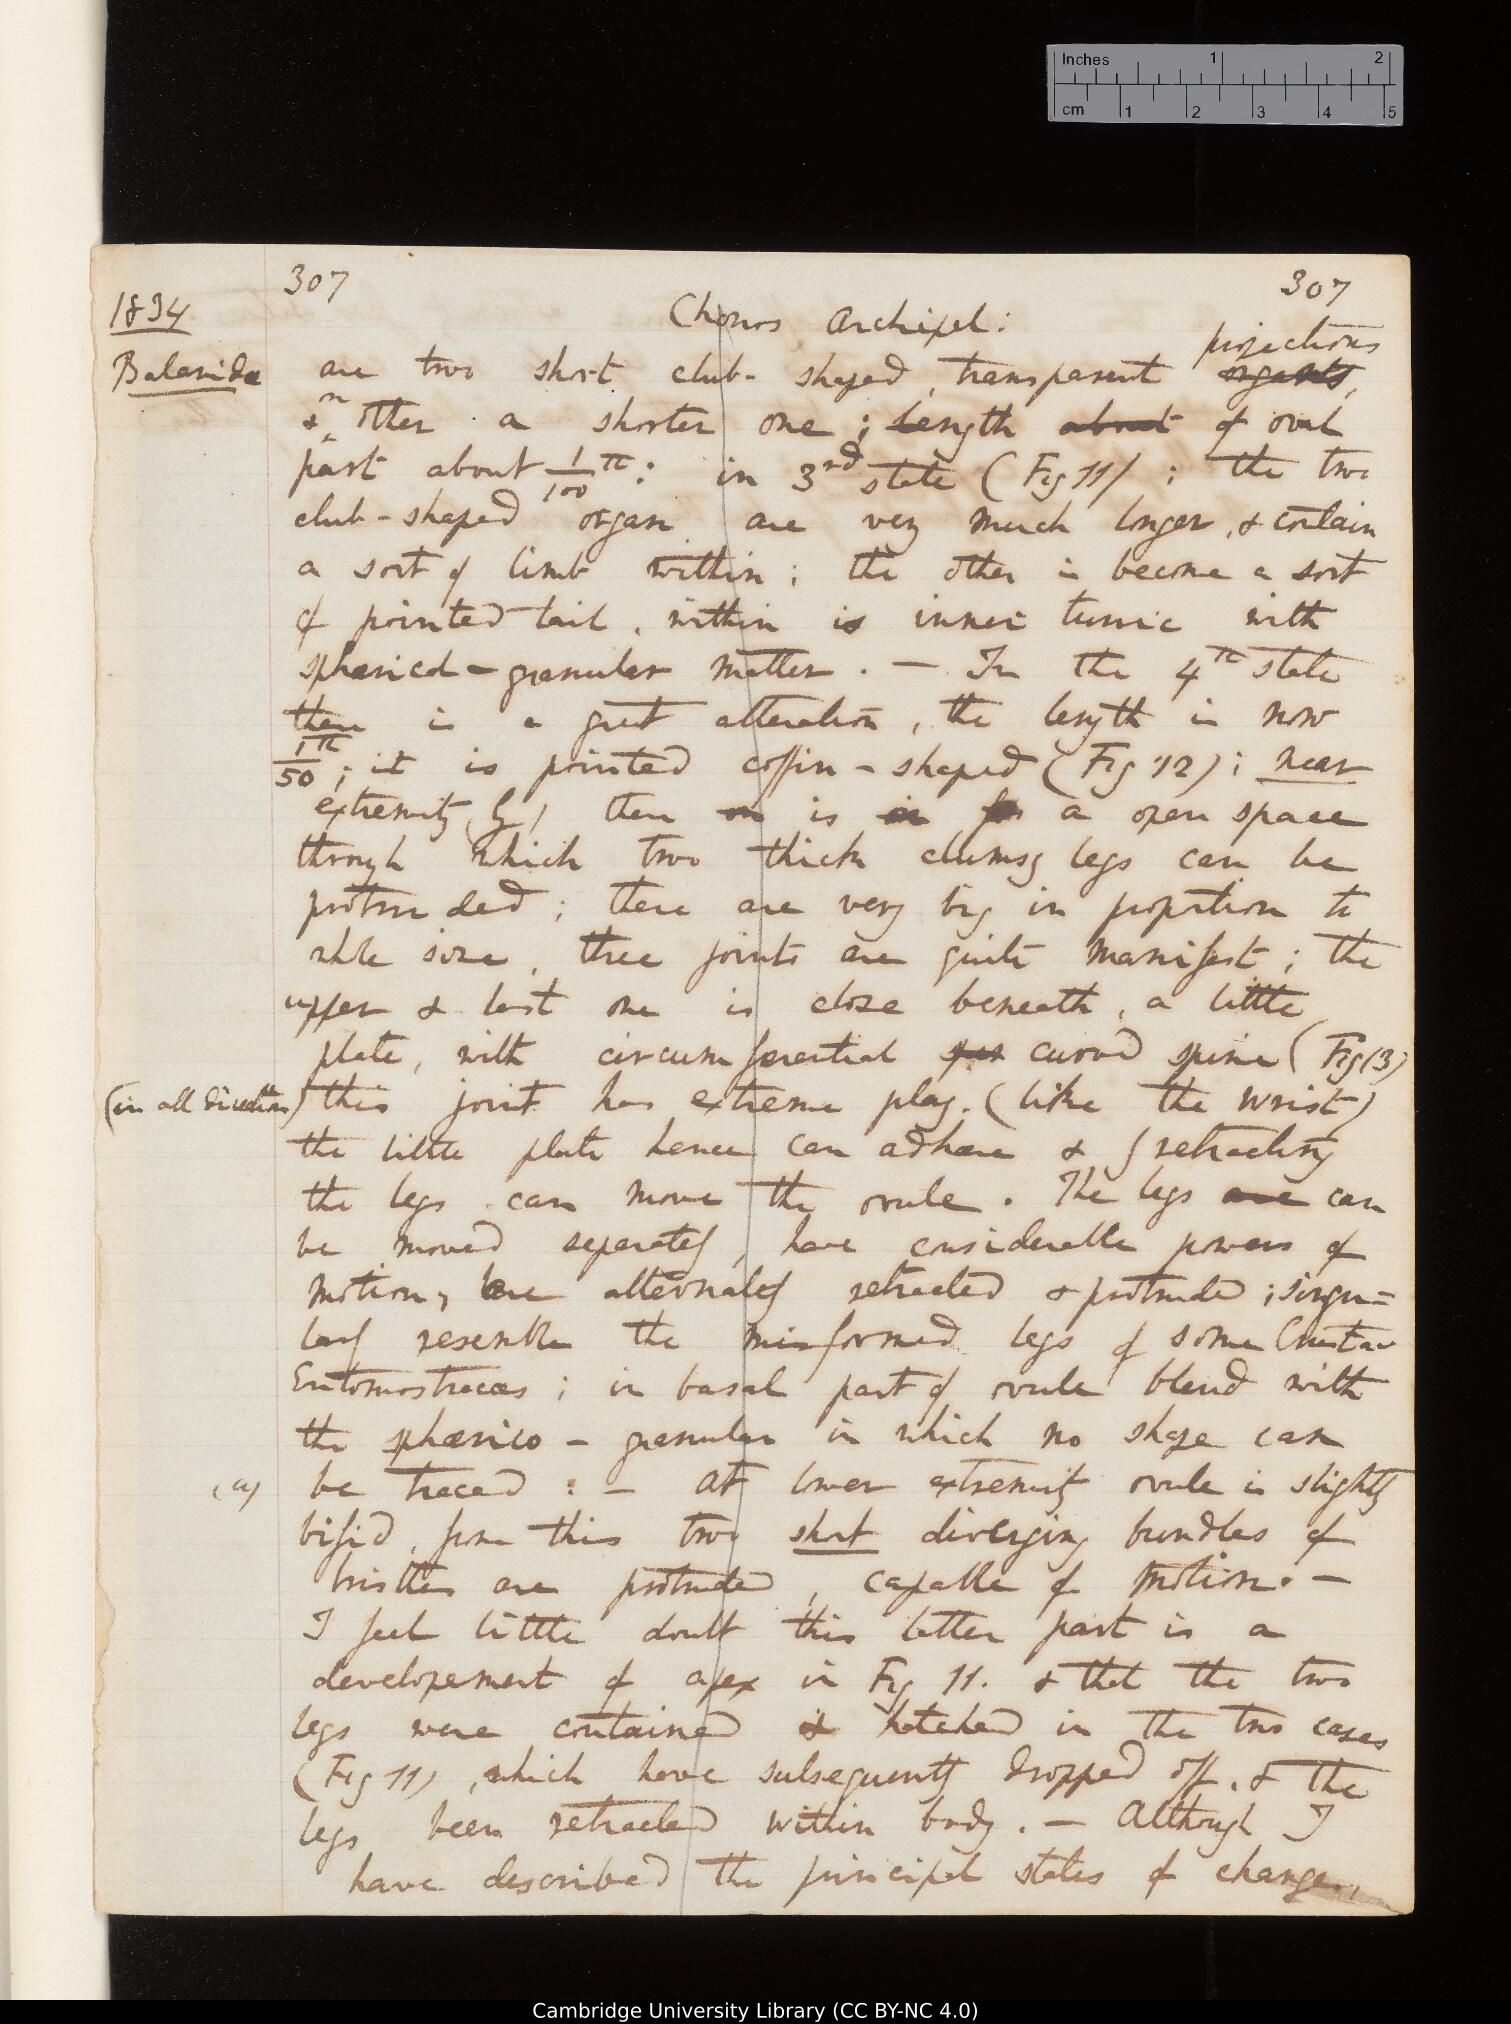 Inches 1 2
cm 1 2 3 4 5
307 307
1834
Chonos Archipel:
Balanidæ
projections
are two short club-shaped, transparent organs,
& other a shorter one; length about of oval
part about 1/100th: in 3rd state (Fig 11): the two
club-shaped organ are very much longer, & contain
a sort of limb within: the other is become a sort
of pointed tail, within is inner tunic with
sphærical-granular matter. — In the 4th state
there is a great alteration, the length is now
1/50th; it is pointed coffin-shaped (Fig 12); near
extremity there is a open space
through which two thick clumsy legs can be
protruded; there are very big in proportion to
whole size, three joints are quite manifest; the
upper & last one is close beneath, a little
plate, with circumferential curved spine (Fig 13)
(in all directions) this joint has extreme play. (like the wrist)
the little plate hence can adhere & by retracting
the legs can move the ovule. The legs are can
be moved separately, have considerable powers of
motion, are alternately retracted & protruded; singu=
larly resemble the misformed legs of some Crustac
Entomostraces; in basal part of ovule blend with
the sphærico-granular in which no shape can
(a) be traced: — At lower extremity ovule is slightly
bifid, from this two short diverging bundles of
bristles are protruded, capable of motion. —
I feel little doubt this latter part is a
developement of apex in Fig 11. & that the two
legs were contained & hatched in the two cases
(Fig 11), which have subsequently dropped off, & the
legs been retracted within body. — Although I
have described the principal states of change,
Cambridge University Library (CC BY-NC 4.0)